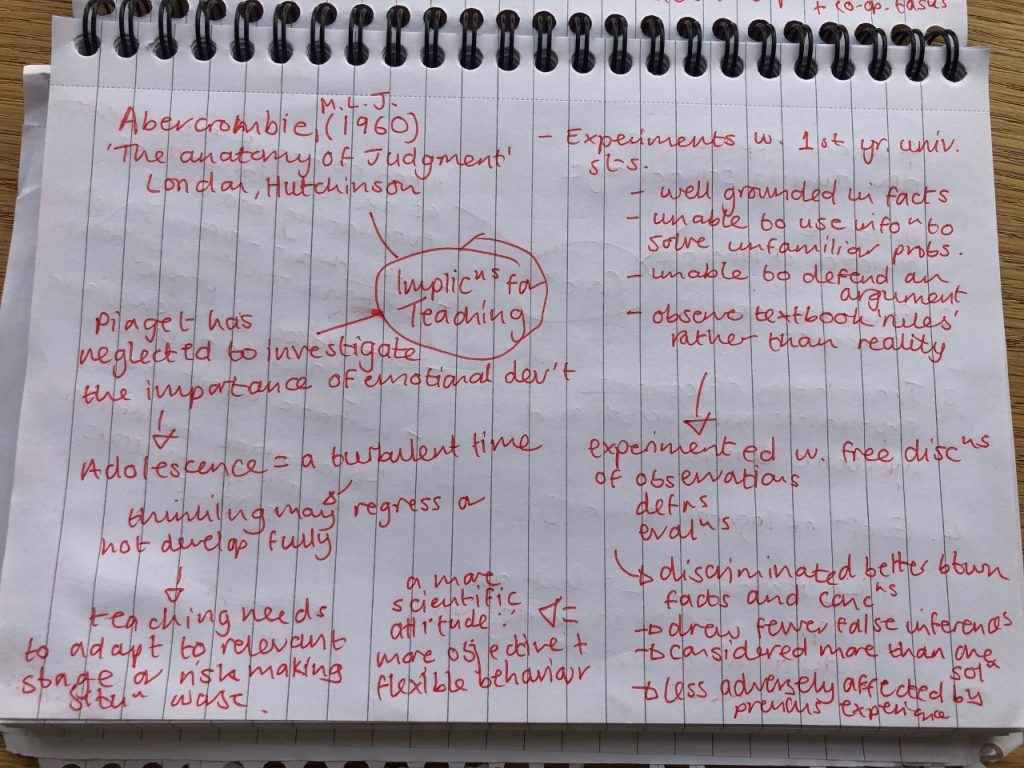 + co-op. tasks
M.L.J.
Abercrombie, (1960)
'The anatomy of Judgment'
London, Hutchinson
Implicns for
Teaching
Piaget has
neglected to investigate
the importance of emotional dev't
Adolescence = a turbulent time
thinking may regress or
not develop fully
teaching needs
to adapt to relevant
stage or risk making
situn worse.
- Experiments w. 1st yr. univ.
sts.
- well grounded in facts
- unable to use infon to
solve unfamiliar probs.
- unable to defend an
argument
- observe textbook 'rules'
rather than reality
experimented w. free discns
of observations
defns
evalns
discriminated better btwn
facts and concns
drew fewer false inferences
considered more than one
soln
less adversely affected by
previous experience
a more
scientific
attitude:
more objective +
flexible behaviour